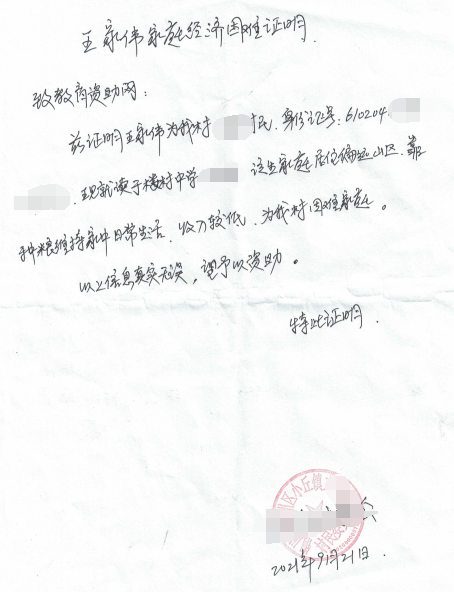 王家伟家庭经济困难证明.
致教育资助网：
兹证明王家伟为我村 村民.身份证号：610204
.现就读于楼村中学 该生家庭居住偏远山区.靠
种粮维持家中日常生活.收入较低.为我村困难家庭。
以上信息真实无误，望予以资助。
特此证明.
区小丘镇
2021年9月21日.